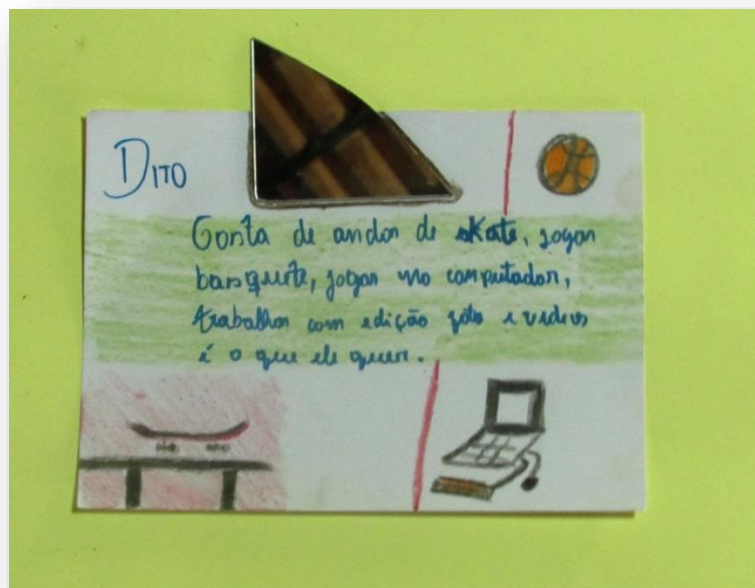 Dito
Gosta de andar de skate, jogar
basquete, jogar no computador,
trabalhar com edição foto e videos
é o que ele quer.